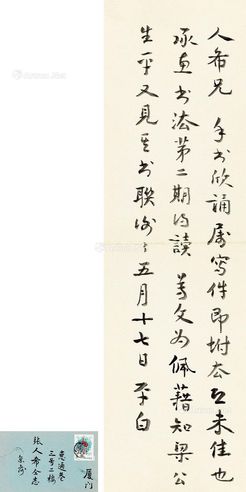 人希兄 手书欣诵属写件即坿奉上未佳也
承惠书法第二期得读 尊文为佩藉知梁公
生平又见其书联谢谢五月十七日 平白
厦门
惠通巷
三号二楼
张人希同志